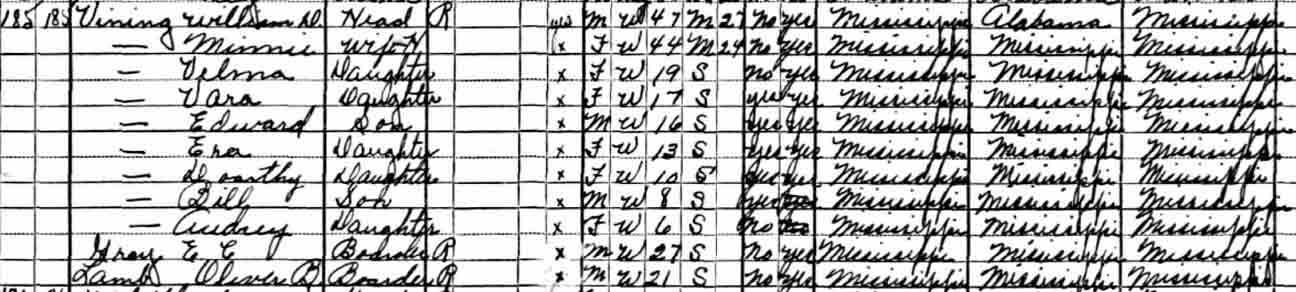 185 185 Vining William D. Head R yes M W 47 M 27 no yes Mississippi Alabama Mississippi
— Minnie Wife H x F W 44 M 24 no yes Mississippi Mississippi Mississippi
— Velma Daughter x F W 19 S no yes Mississippi Mississippi Mississippi
— Vara Daughter x F W 17 S yes yes Mississippi Mississippi Mississippi
— Edward Son x M W 16 S yes yes Mississippi Mississippi Mississippi
— Era Daughter x F W 13 S yes yes Mississippi Mississippi Mississippi
— Doarthy Daughter x F W 10 S yes yes Mississippi Mississippi Mississippi
— Bill Son x M W 8 S yes Mississippi Mississippi Mississippi
— Audrey Daughter x F W 6 S no Mississippi Mississippi Mississippi
Gray E C Boarder R x M W 27 S no yes Mississippi Mississippi Mississippi
Lamb Oliver B Boarder R x M W 21 S no yes Mississippi Mississippi Mississippi